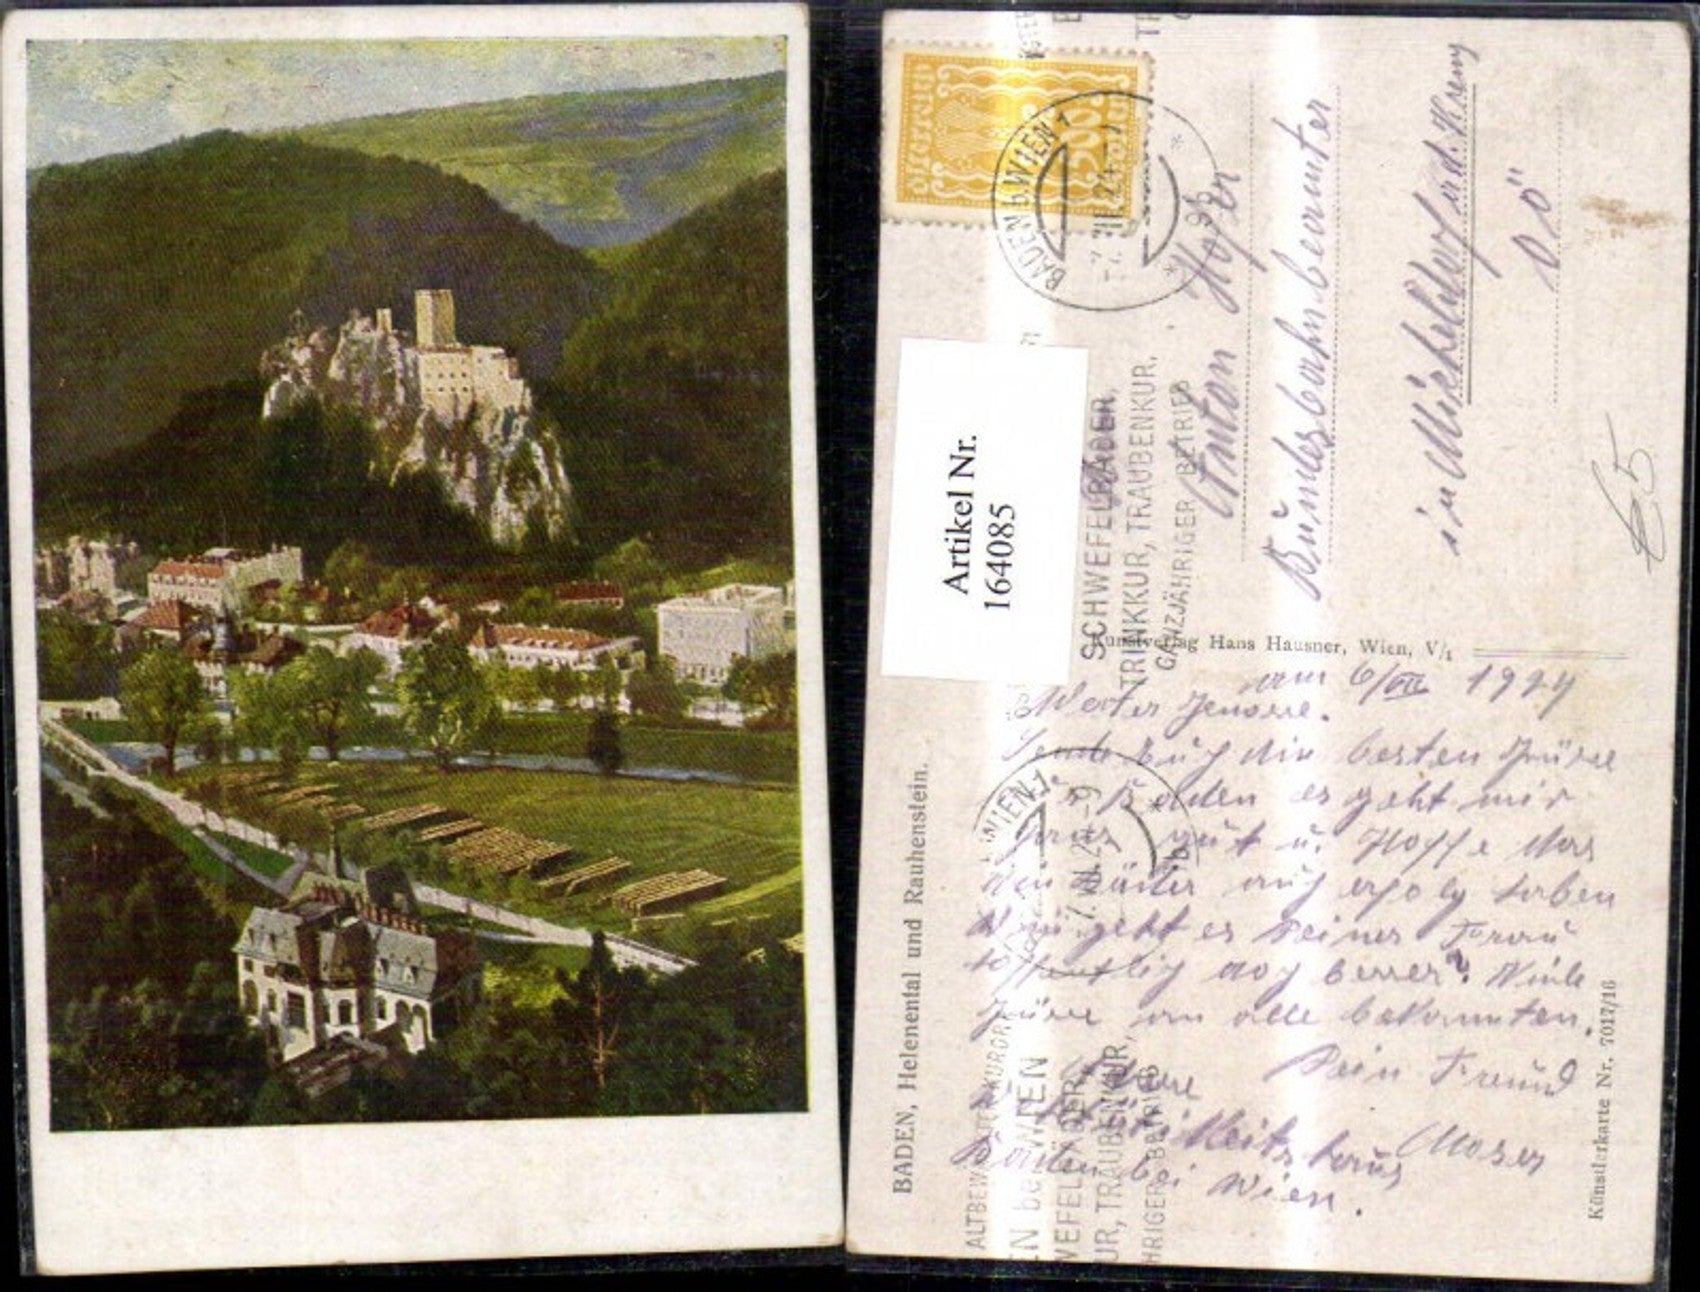 ÖSTERREICH
200
BADEN b. WIEN 1
-7. VII. 24 -
Anton Hofer
Bundesbahnbeamter
in Micheldorf a.d. Krems
OÖ
€5
Artikel Nr.
164085
SCHWEFELBÄDER,
TRINKKUR, TRAUBENKUR,
GANZJÄHRIGER BETRIEB
Kunstverlag Hans Hausner, Wien, V/1
am 6/VII 1924
Werter Genosse.
Sende Euch die besten Grüsse
Baden es geht mir
ganz gut u. Hoffe das
auch erfolg haben
Wie geht es Deiner Frau
hoffentlich doch besser? Viele
Grüsse an alle bekannten.
Dein Freund
Moser
Adresse
Baden bei Wien.
WIEN 1
7. VII. 24 - 9
ALTBEWÄHRTER KURORT
BADEN bei WIEN
SCHWEFELBÄDER,
TRINKKUR, TRAUBENKUR,
GANZJÄHRIGER BETRIEB
BADEN, Helenental und Rauhenstein.
Künstlerkarte Nr. 7017/16